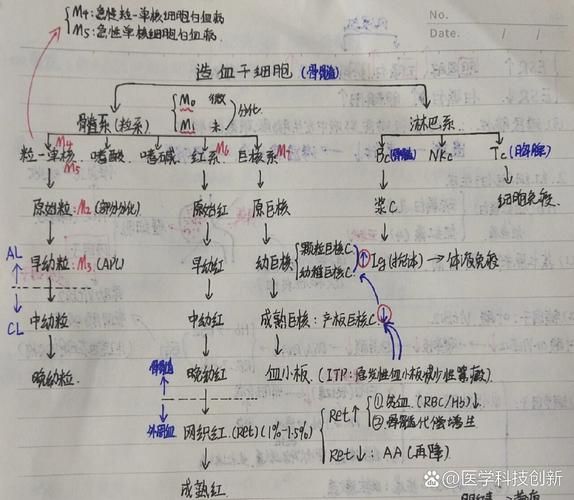 M4:急性粒-单核细胞白血病
M5:急性单核细胞白血病.
No.
Date. / /
造血干细胞 (骨髓)
骨髓系(粒系) M0 微 M1 未 分化
淋巴系
粒-单核. M4 M5 嗜酸. 嗜碱. 红系 M6 巨核系 M7 Bc(骨髓) NKc Tc(胸腺)
原始粒: M2 (部分分化) 原始红 原巨核 浆C 细胞免疫
早幼粒: M3 (APL) 早幼红 幼巨核 颗粒巨核C. 幼稚巨核C. ↑ Ig(抗体) → 体液免疫
AL
CL
中幼粒 中幼红 成熟巨核: 产板巨核C ↓
晚幼粒. 骨髓 晚幼红 血小板. (ITP:
外周血 网织红. (Ret) (1%-1.5%) Ret↑ ①贫血 (RBC/Hb)↓ ②骨髓代偿增生
Ret↓: AA (再障).
成熟红
@医学科技创新